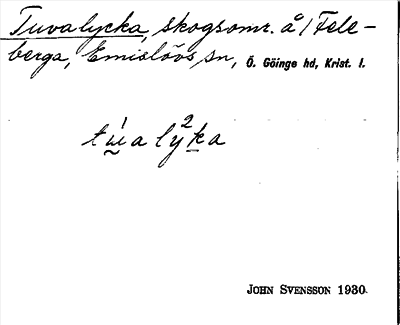 Tuvalycka, skogsomr. å 1 Fele-
berga, Emislövs sn, Ö. Göinge hd, Krist. l.
tẃalỳ²ka
JOHN SVENSSON 1930.